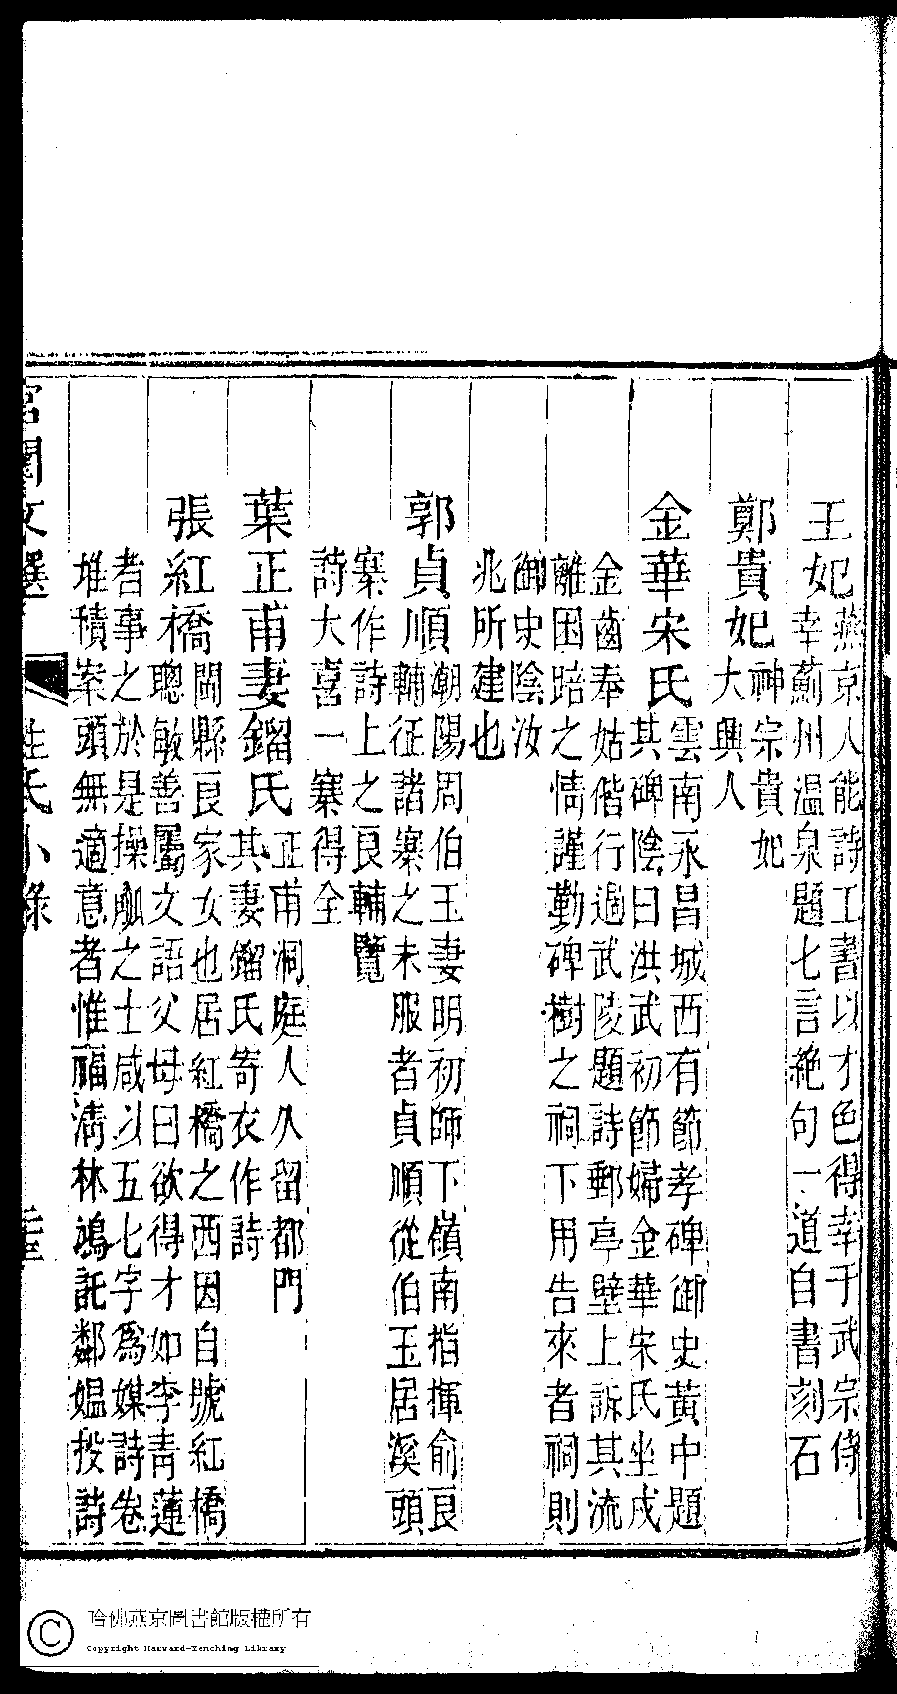 王妃燕京人能詩工書以才色得幸于武宗侍
幸薊州温泉題七言絶句一道自書刻石
鄭貴妃神宗貴妃
大興人
金華宋氏雲南永昌城西有節孝碑御史黃中題
其碑陰曰洪武初節婦金華宋氏坐戍
金齒奉姑偕行過武陵題詩郵亭壁上訴其流
離困踣之情謹勤碑樹之祠下用告來者祠則
御史陰汝
兆所建也
郭貞順潮陽周伯玉妻明初師下嶺南指揮俞良
輔征諸寨之未服者貞順從伯玉居溪頭
寨作詩上之良輔覽
詩大喜一寨得全
葉正甫妻鎦氏正甫洞庭人久留都門
其妻鎦氏寄衣作詩
張紅橋閩縣良家女也居紅橋之西因自號紅橋
聰敏善屬文語父母曰欲得才如李青蓮
者事之於是操觚之士咸以五七字爲媒詩卷
堆積案頭無適意者惟福淸林鴻託鄰媼投詩
宮閨文選
姓氏小錄
哈佛燕京圖書館版權所有
Copyright Harvard-Yenching Library